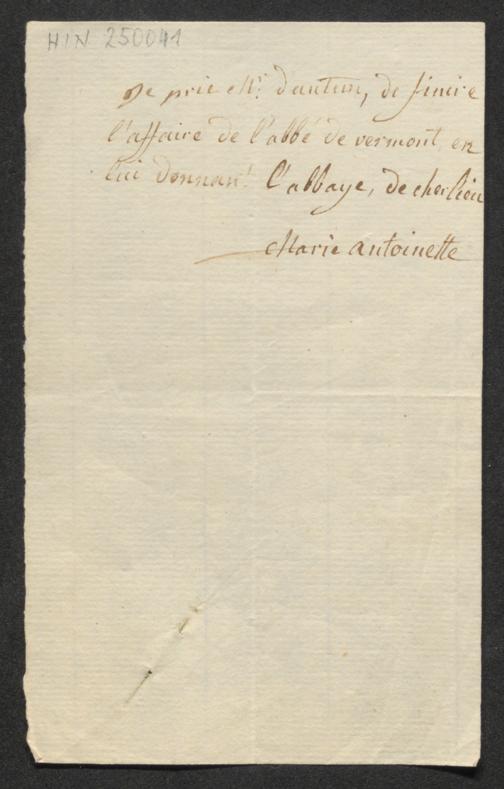 HIN 250041
je prie Mr. dautun, de finire
l'affaire de l'abbé de vermont, en
lui donnant l'abbaye, de cherlieu
Marie antoinette